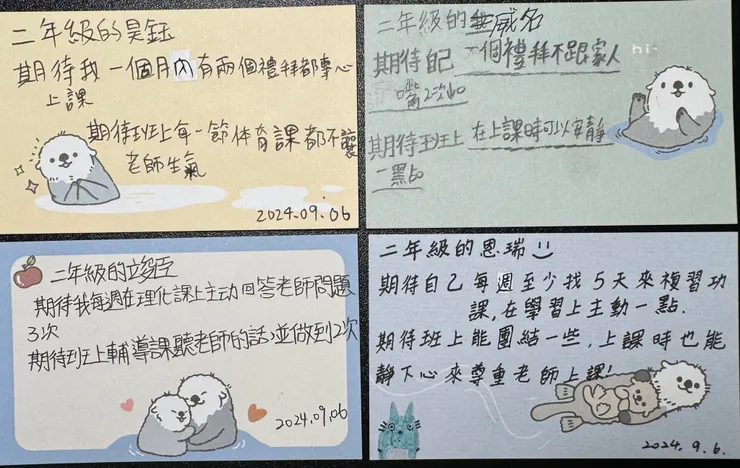 二年級的昊鈺
期待我一個月內有兩個禮拜都專心
上課
期待班上每一節體育課都不讓
老師生氣
2024.09.06
二年級的威名
期待自己一個禮拜不跟家人
嘴2次
期待班上在上課時可以安靜
一點
hi~
二年級的立
期待我每週在理化課上主动回答老師問題
3次
期待班上輔導課聽老師的話,並做到2次
2024.09.06
二年級的恩瑞
期待自己每週至少找5天來複習功
課,在學習上主動一點.
期待班上能團結一些,上課時也能
靜下心來尊重老師上課!
2024.9.6.